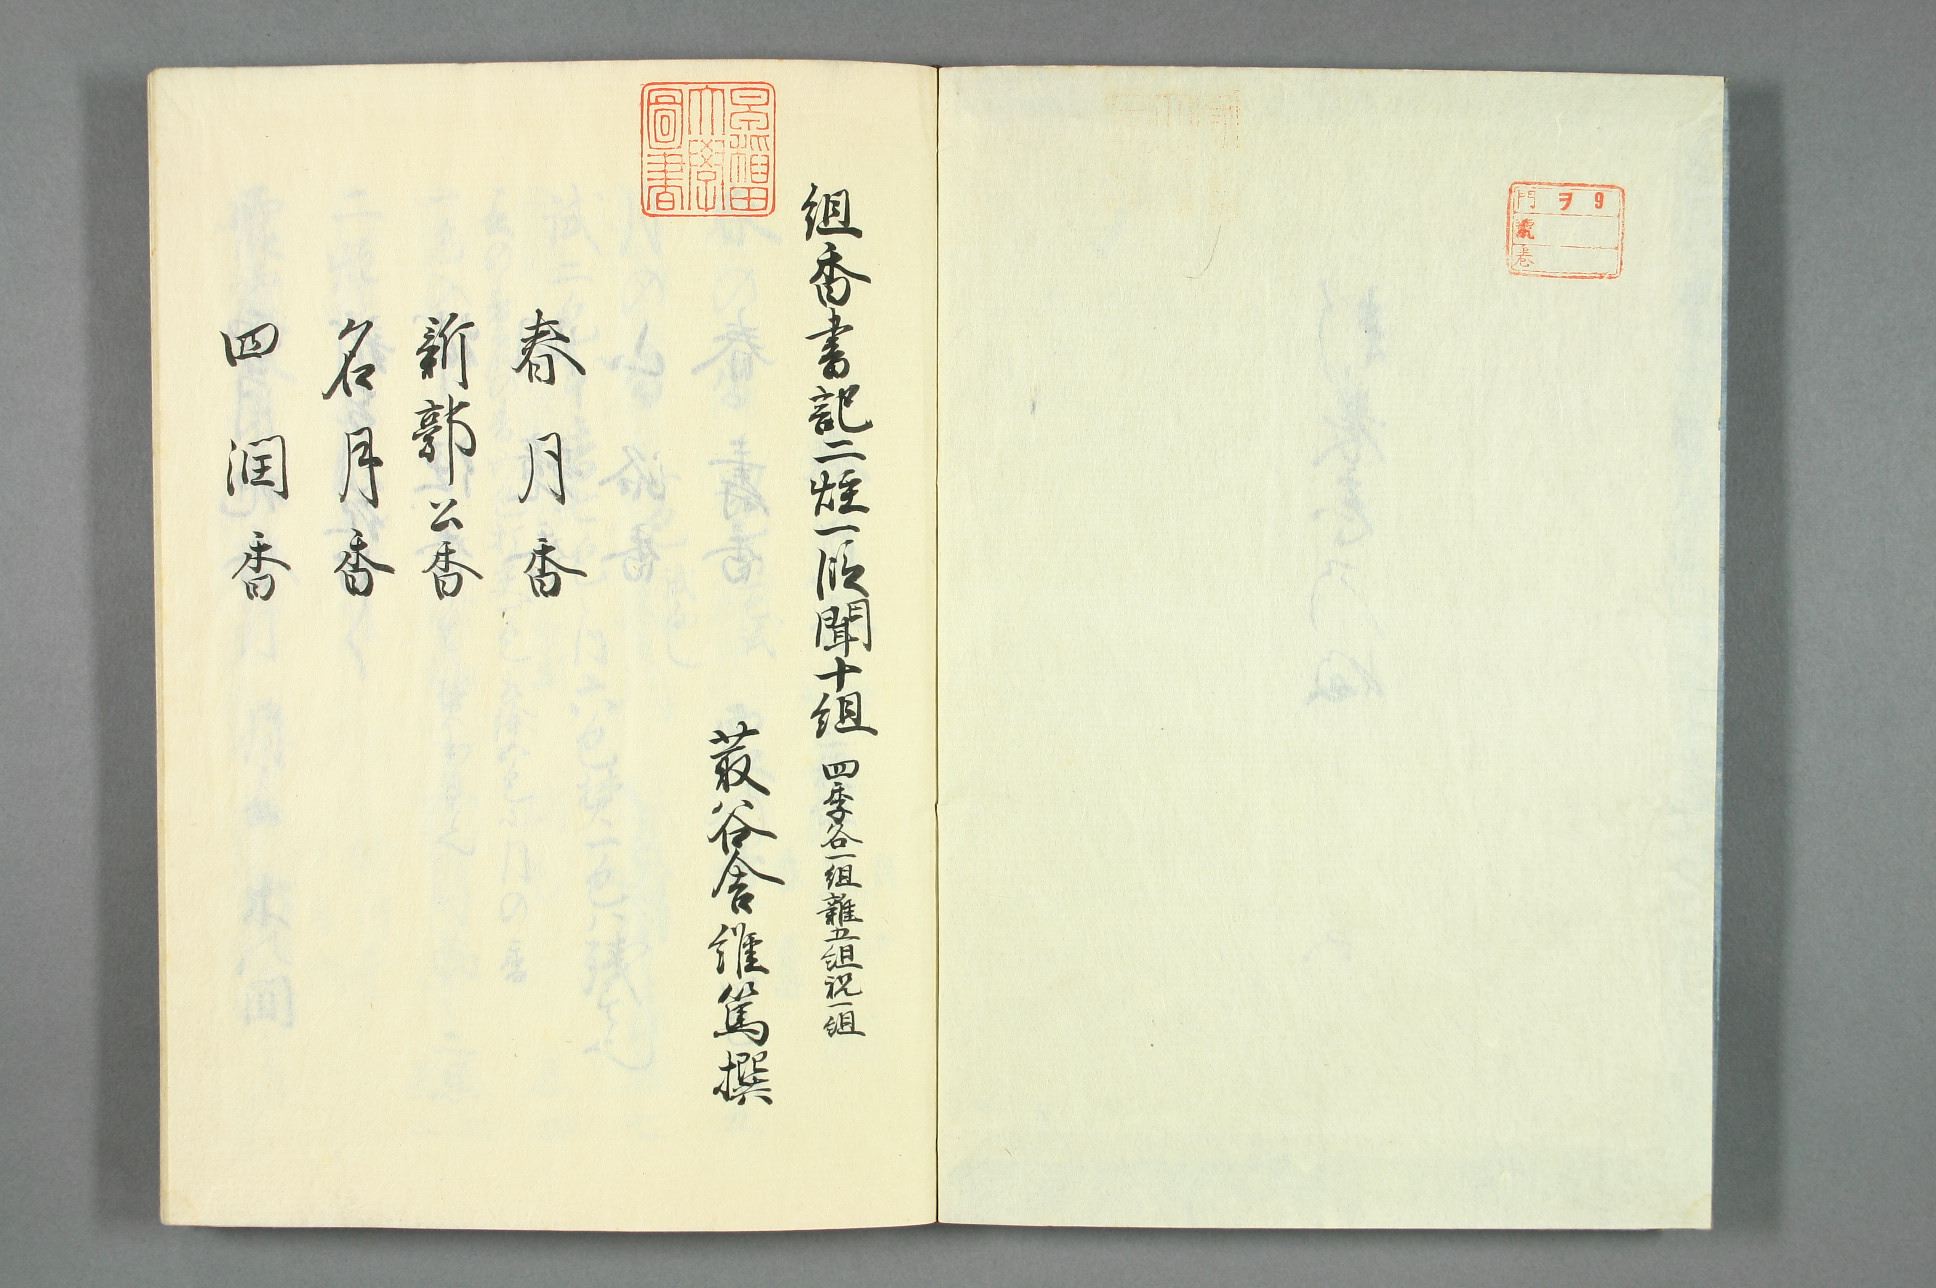 門 ヲ 9
號
卷
早稲田
大學
圖書
組香書記二炷一聞十組 四季各一組雜五組祝一組
菆谷舎維篤撰
春月香
新郭公香
名月香
四潤香